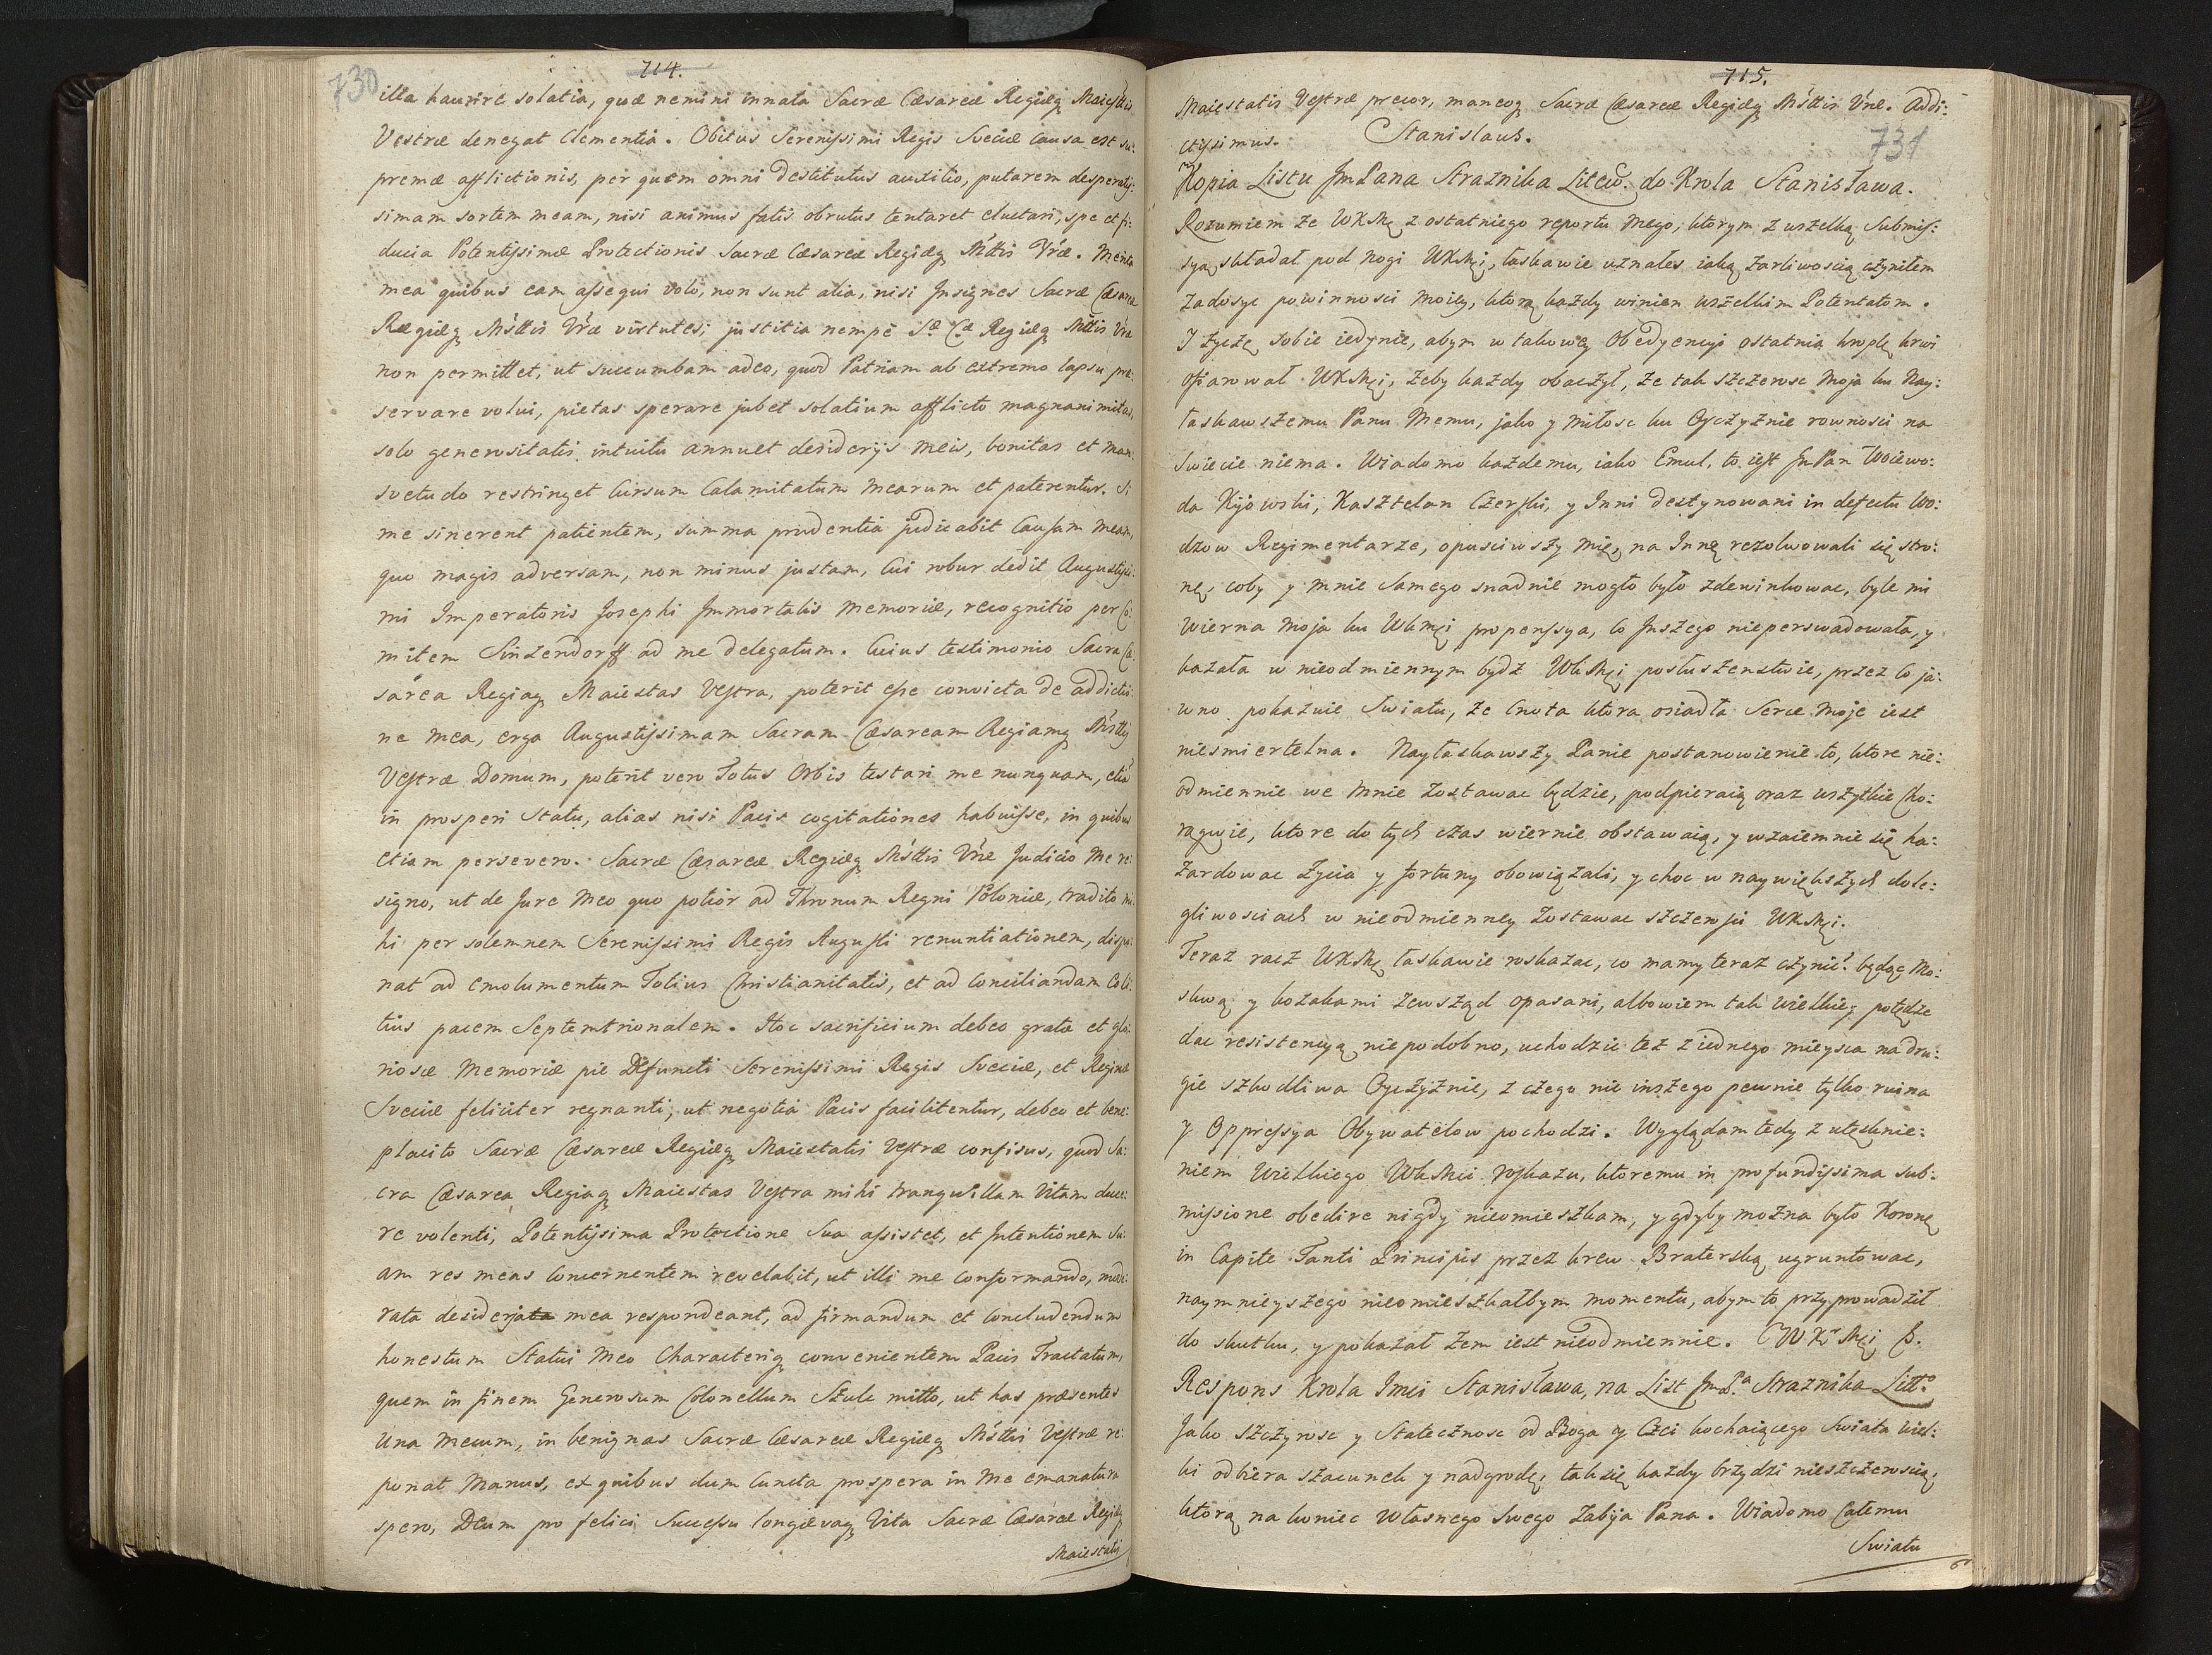 714.
730
illa haurire solatia, quæ nemini innata Sacræ Cæsareæ Regiæq Maiestatis
Vestræ denegat Clementia. Obitus Serenissimi Regis Sveciæ causa est su:
premæ afflictionis, per quem omni destitutus auxilio, putarem desperatis:
simam sortem meam, nisi animus fatis obrutus tentaret eluctari, spe et fi:
ducia Potentissimæ Protectionis Sacræ Cæsareæ Regiæq Mśttis Vræ. Merita
mea quibus eam assequi volo, non sunt alia, nisi Insignes Sacræ Cæsareæ
Regiæq Mśttis Vræ virtutes; justitia nempè Sæ Cæ Regiæq Mttis Vra
non permittet, ut succumbam adeo, quod Patriam ab extremo lapsu præ:
servare volui, pietas sperare jubet solatium afflicto magnanimitas,
solo generositatis intuitu annuet desiderijs meis, bonitas et man:
svetudo restringet Cursum Calamitatum mearum et paterentur. Si
me sinerent patientem, summa prudentia judicabit Causam meam,
quo magis adversam, non minus justam, Cui robur dedit Augustissi:
mi Imperatoris Josephi Immortalis memoriæ, recognitio per Co:
mitem Sinzendorff ad me delegatum. Cuius testimonio Sacra Cæ:
sarea Regiaq Maiestas Vestra, poterit esse convicta de addictio:
ne mea, erga Augustissimam Sacram Cæsaream Regiamq Mśttis
Vestræ Domum, poterit vero Totus Orbis testari me nunquam, etiā
in prosperi Statu, alias nisi Pacis cogitationes habuisse, in quibus
etiam persevero. Sacræ Cæsareæ Regiæq Mśttis Vræ Judicio me re:
signo, ut de Jure Meo quo potior ad Thronum Regni Poloniæ, tradito mi:
hi per solemnem Serenissimi Regis Augusti renuntiationem, dispo:
nat ad emolumentum Totius Christianitatis, et ad Conciliandam Coli:
tius pacem Septemtrionalem. Hoc sacrificium debeo gratæ et glo:
riosæ Memoriæ pie Defuncti Serenissimi Regis Sveciæ, et Reginæ
Sveciæ feliciter regnanti, ut negotia Pacis facilitentur, debeo et bene:
placito Sacræ Cæsareæ Regiæq Maiestatis Vestræ confisus, quod Sa:
cra Cæsarea Regiaq Maiestas Vestra mihi tranquillam Vitam duce:
re volenti, Potentissima Protectione Sua assistet, et Intentionem Su:
am res meas Concernentem revelabit, ut illi me conformando, mode:
rata desideria mea respondeant, ad firmandum et Concludendum
honestum Statui Meo Characteriq convenientem Pacis Tractatum,
quem in finem Generosum Colonellum Szulc mitto, ut has præsentes
Una Mecum, in benignas Sacræ Cæsareæ Regiæq Mśttis Vestræ re:
ponat Manus, ex quibus dum Cuncta prospera in Me emanatura
spero, Deum pro felici Successu longævaq Vita Sacræ Cæsareæ Regiæq
Maiestatis
715.
731
Maiestatis Vestræ precor, maneoq Sacræ Cæsareæ Regiæq Mśttis Vræ. Addi:
ctissimus. Stanislaus.
Kopia Listu Jm Pana Straznika Litew. do Krola Stanisława.
Rozumiem ze WKMę z ostatniego reportu mego, ktorym z wszelką Submis:
syą składał pod nogi WKMci, łaskawie uznałes iaką zarliwoscią czyniłem
zadosyc powinnosci moiey, ktorą kazdy winien wszelkim Potentatom.
J zyczę sobie iedynie, abym w takowey Obedyencyi ostatnią kroplę krwi
ofiarował WKMci, zeby kazdy obaczył, ze tak szczerosc moja ku Nay:
łaskawszemu Panu Memu, jako y miłosc ku Oyczyznie rownosci na
swiecie niema. Wiadomo kazdemu, iako Emul, to iest Jm Pan Woiewo:
da Kijowski, Kasztelan Czerski, y Inni destynowani in defectu Wo:
dzow Regimentarze, opusciwszy mię, na Inną rezolwowali się stro:
nę, coby y mnie Samego snadnie mogło było zdewinkowac, byle mi
Wierna moja ku WKMci propensya, co Inszego nieperswadowała, y
kazała w nieodmiennym bydz WKMci posłuszenstwie, przez co ja:
wno pokazuie Swiatu, ze Cnota ktora osiadła Serce moje iest
niesmiertelna. Nayłaskawszy Panie postanowienie to, ktore nie:
odmiennie we mnie zostawac będzie, podpieraią oraz wszytkie Cho:
rągwie, ktore do tych czas wiernie obstawaią, y wzaiemnie się ha:
zardowac zycia y fortuny obowiązali, y choc w naywiększych dole:
gliwosciach w nieodmienney zostawac szczerosci WKMci.
Teraz racz WKMę łaskawie roskazac, co mamy teraz czynic? będąc Mo:
skwą y kozakami zewsząd opasani, albowiem tak wielkiey potędze
dac resistencyą niepodobno, uchodzic tez z iednego mieysca na dru:
gie szkodliwa Oyczyznie, z czego nic inszego pewnie tylko ruina
y Oppressya Obywatelow pochodzi. Wyglądam tedy z utęsknie:
niem Wielkiego WKMci roskazu, ktoremu in profundissima sub:
missione obedire nigdy nieomieszkam, y gdyby mozna było Koronę
in Capite Tanti Principis przez krew Braterską ugruntowac,
naymnieyszego nieomieszkałbym momentu, abym to przyprowadził
do skutku, y pokazał zem iest nieodmiennie. WKMci S.
Respons Krola Jmci Stanisława, na List Jm Pa Straznika Litto
Jako szczyrosc y Statecznosc od Boga y Czci kochaiącego Swiata wiel:
ki odbiera szacunek y nadgrodę, tak się kazdy brzydzi nieszczeroscią,
ktorą na koniec Własnego Swego zabija Pana. Wiadomo Całemu
Swiatu